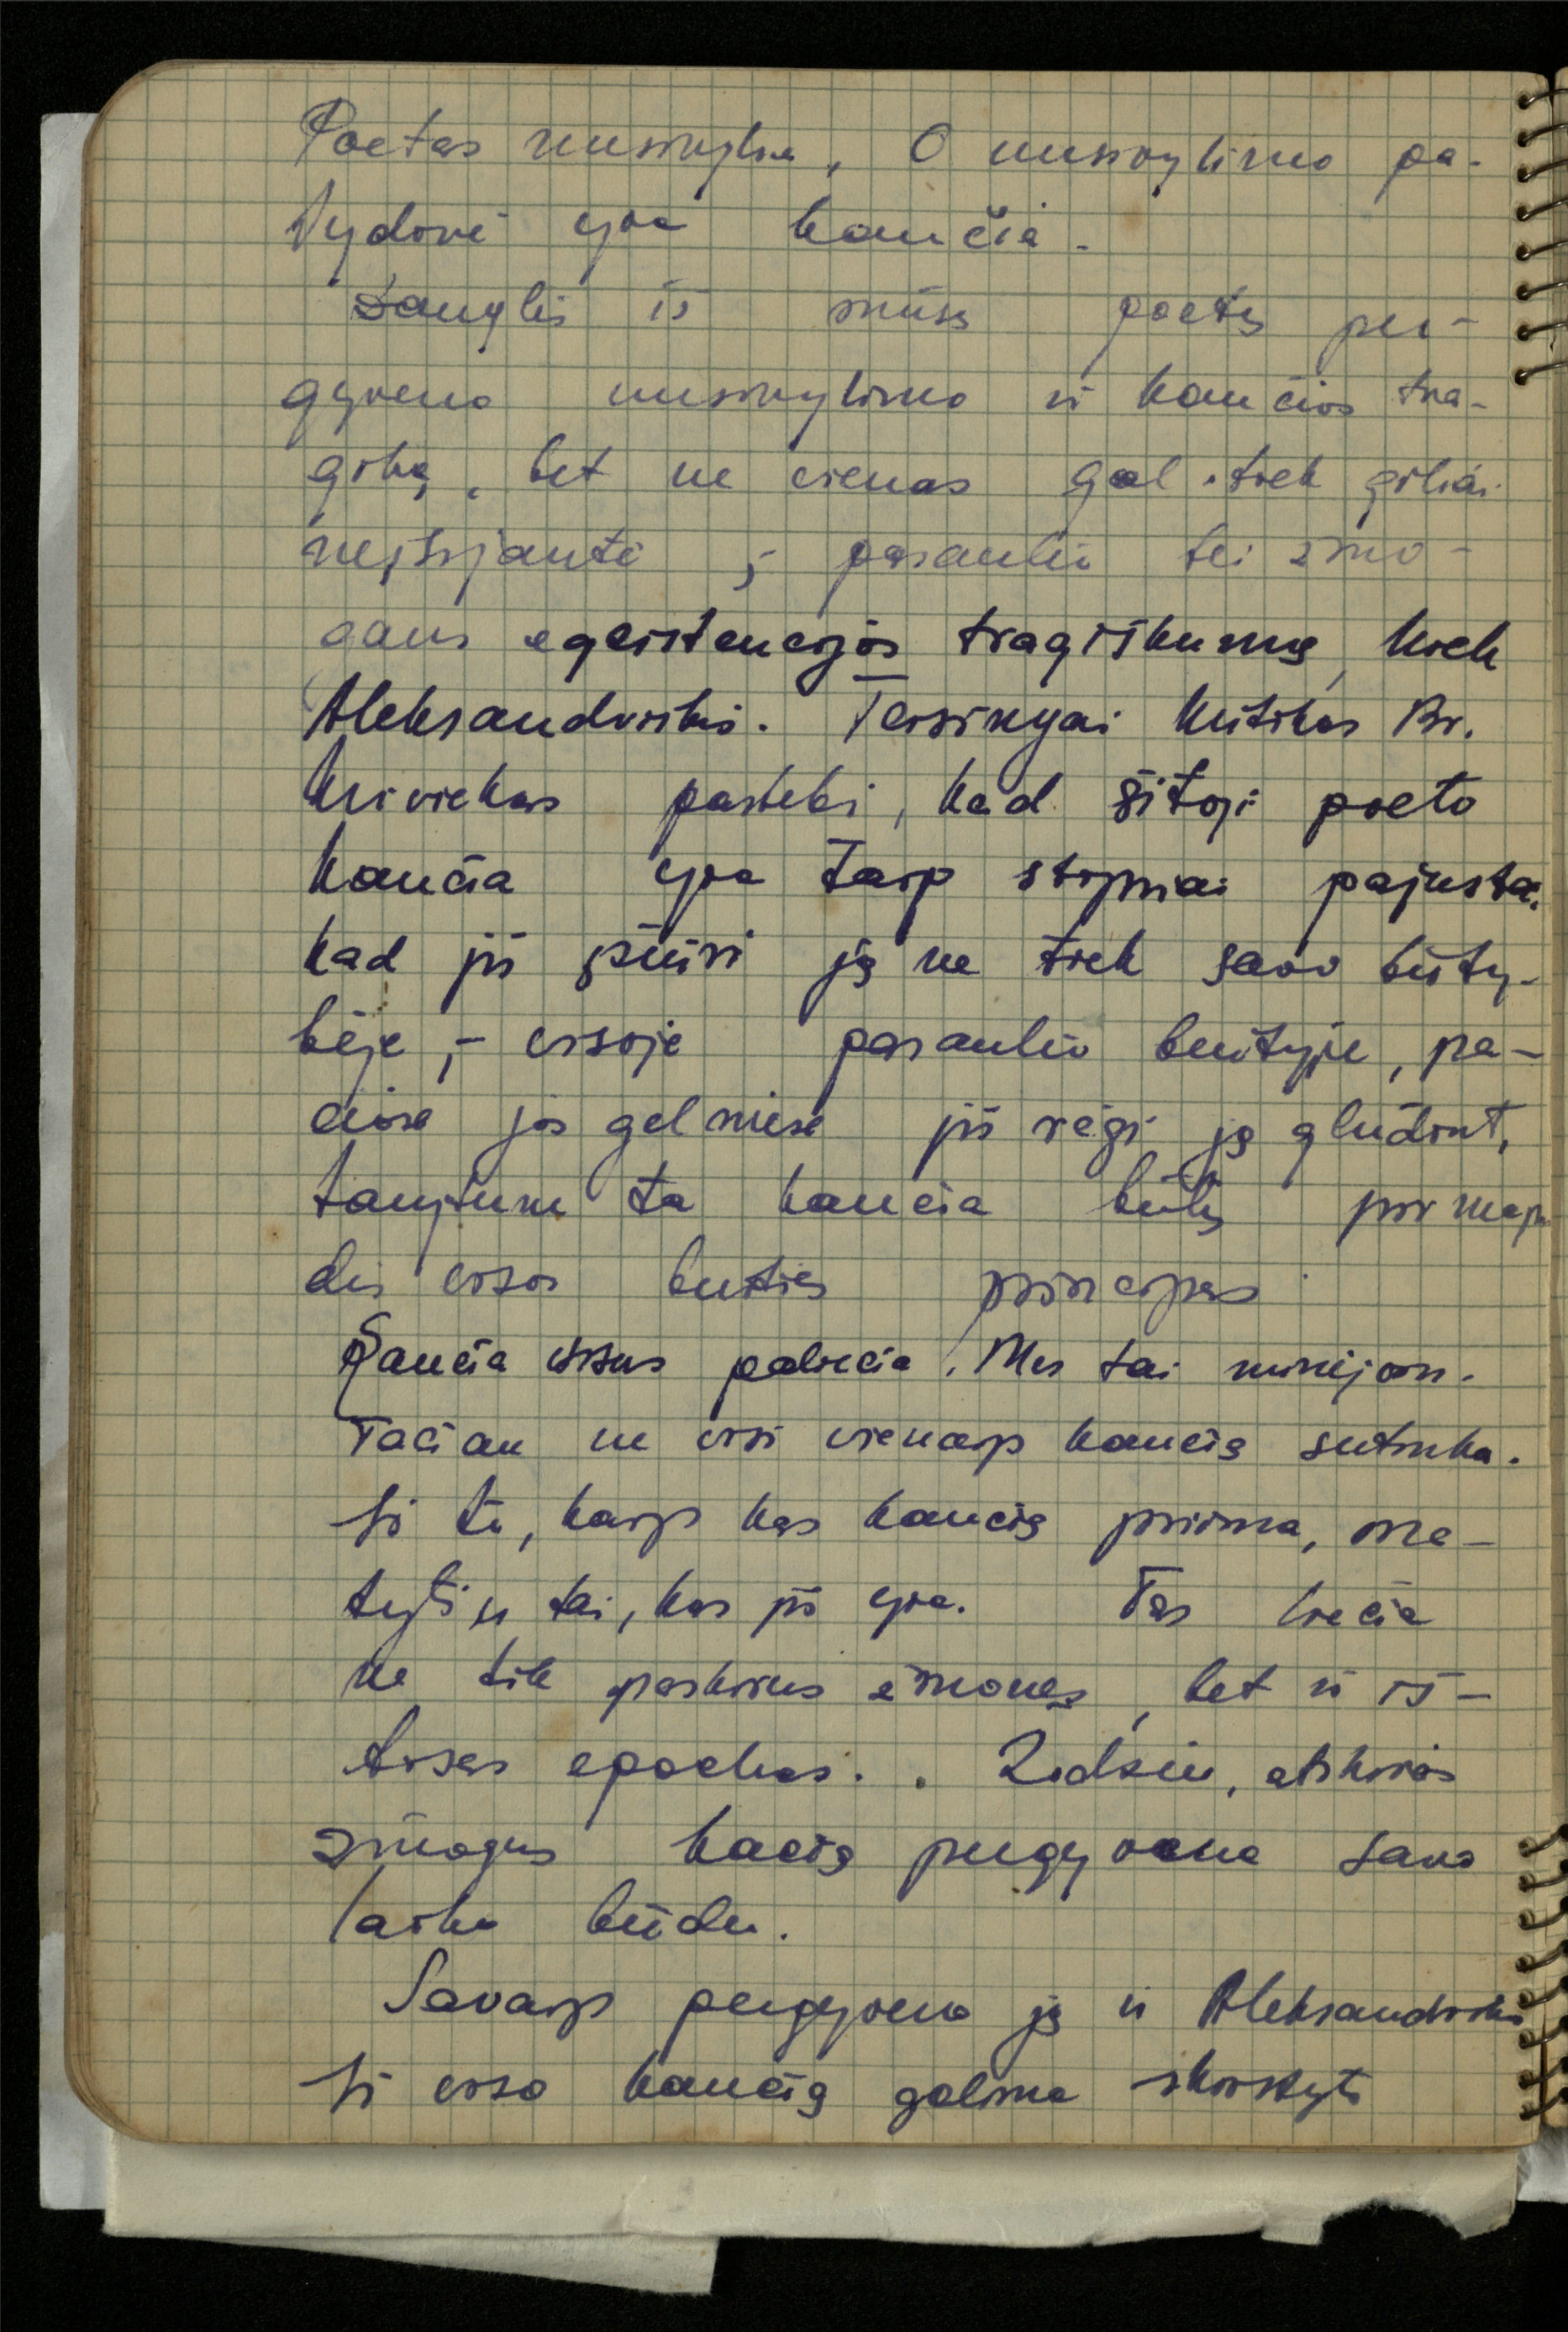 Poetas nusivylia, O nusivylimo pa-
lydovė yra kančia.
Dauglis iš mūsų poetų per-
gyveno nusivylimo ir kančios tra-
giką, bet ne vienas gal tiek giliai
neįsijautė į pasaulio bei žmo-
gaus egzistencijos tragiškumą, kiek
Aleksandriškis. Teisingai kritikas Br.
Kriviekas pastebi, kad šitoji poeto
kančia yra taip stipriai pajusta,
kad jis žiūri ją ne tiek savo būty-
bėje, - visoje pasaulio buityje, pa-
čiose jos gelmėse jis regi ją glūdint,
tarytum ta kančia būtų pirmapra
dis visos buities principas
Kančia visus paliečia. Mes tai minėjom.
Tačiau ne visi vienaip kančią sutinka.
Iš to, kaip kas kančią priima, ma-
tyti ir tai, kas jis yra. Tas liečia
ne tik paskirus žmones, bet ir iš-
tisas epochas. Žodžiu, atskiras
žmogus kačią pergyvena savo
laiku būdu.
Savaip pergyveno ją ir Aleksandriškis
Iš viso kančią galima skirstyti